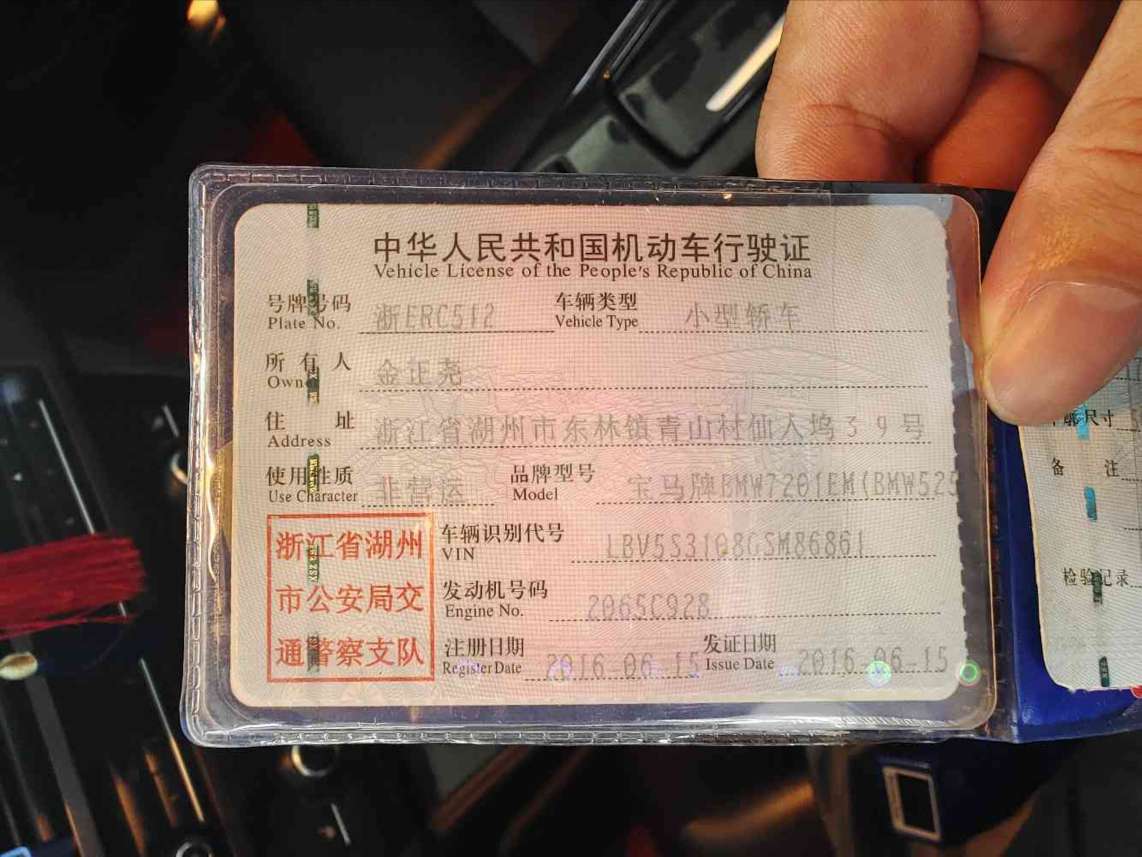 中华人民共和国机动车行驶证
Vehicle License of the People's Republic of China
号牌号码 浙ERC512 车辆类型 小型轿车
Plate No. Vehicle Type
所有人 金正尧
Owner
住址 浙江省湖州市东林镇青山村仙人坞39号
Address
使用性质 非营运 品牌型号 宝马牌BMW7201EM(BMW525
Use Character Model
浙江省湖州
市公安局交
通警察支队
车辆识别代号 LBV5S3108GSM86861
VIN
发动机号码 2065C928
Engine No.
注册日期 2016-06-15 发证日期 2016-06-15
Register Date Issue Date
廓尺寸
备注
检验记录